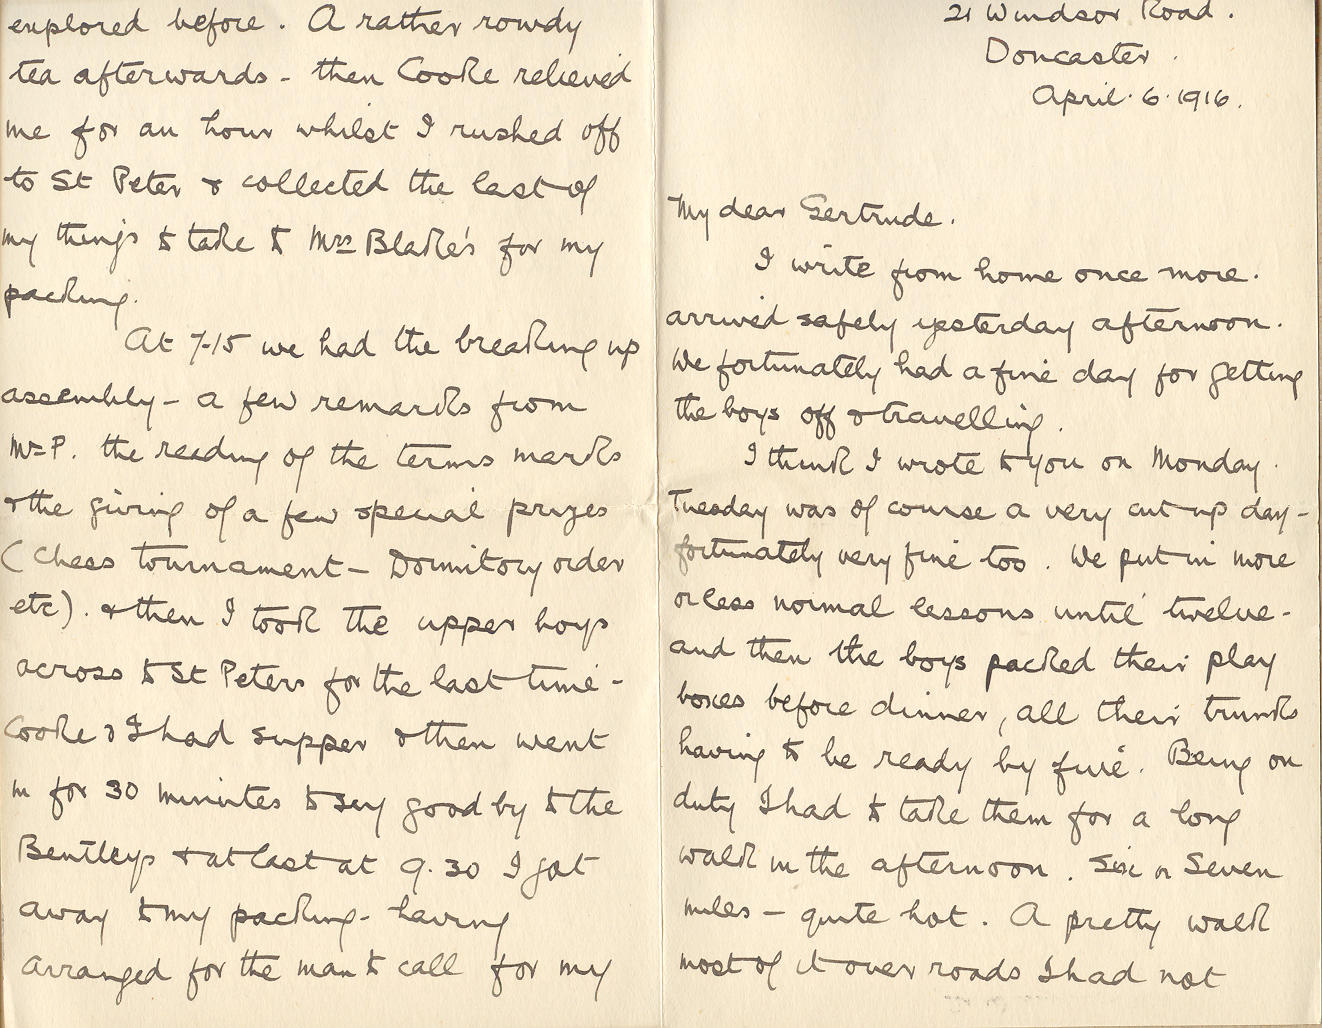 21 Windsor Road.
Doncaster.
April. 6. 1916.
My dear Gertrude.
I write from home once more.
arrived safely yesterday afternoon.
We fortunately had a fine day for getting
the boys off & travelling.
I think I wrote to you on Monday.
Tuesday was of course a very cut up day -
fortunately very fine too. We put in more
or less normal lessons until twelve -
and then the boys packed their play
boxes before dinner, all their trunks
having to be ready by five. Being on
duty I had to take them for a long
walk in the afternoon. Six or Seven
miles - quite hot. A pretty walk
most of it over roads I had not
explored before. A rather rowdy
tea afterwards - then Cooke relieved
me for an hour whilst I rushed off
to St Peter & collected the last of
my things to take to Mrs Blake's for my
packing.
At 7-15 we had the breaking up
assembly - a few remarks from
Mr P. the reading of the terms marks
& the giving of a few special prizes
(Chess tournament - Dormitory order
etc). & then I took the upper boys
across to St Peters for the last time -
Cooke & I had supper & then went
in for 30 minutes to say good by to the
Bentleys & at last at 9.30 I got
away to my packing - having
arranged for the man to call for my